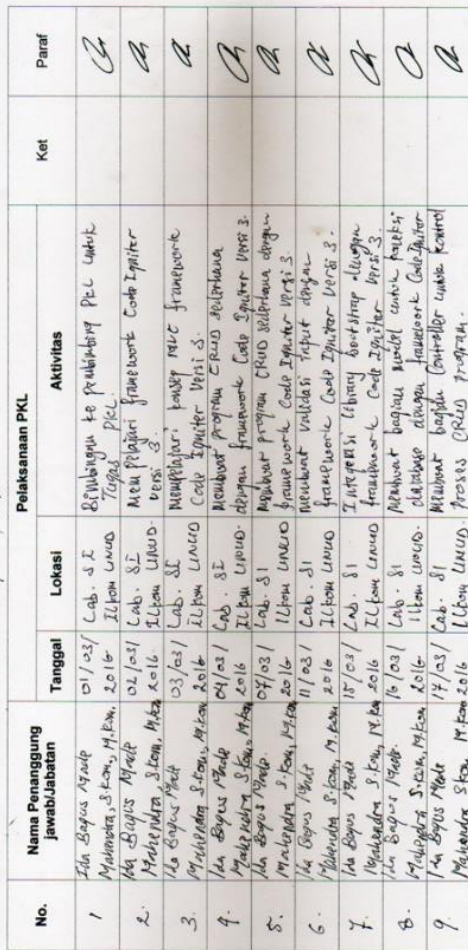 No.
Nama Penanggung
jawab/Jabatan
Pelaksanaan PKL
Tanggal
Lokasi
Aktivitas
Ket
Paraf
1
Ida Bagus Made
Mahendra, S.Kom, M.Kom.
01/03/
2016
Lab. SI
Ilkom UNUD
Bimbingan ke pembimbing PKL untuk
Tugas PKL.
2.
Ida Bagus Made
Mahendra, S.Kom, M.Kom
02/03/
2016
Lab. SI
Ilkom UNUD.
Mempelajari framework Code Igniter
versi 3.
3.
Ida Bagus Made
Mahendra S.Kom, M.Kom
03/03/
2016
Lab. SI
Ilkom UNUD
Mempelajari konsep MVC framework
Code Igniter versi 3.
4.
Ida Bagus Made
Mahendra S.Kom, M.Kom
04/03/
2016
Lab. SI
Ilkom UNUD.
Membuat program CRUD sederhana
dengan framework Code Igniter versi 3.
5.
Ida Bagus Made.
Mahendra S.Kom, M.Kom
07/03/
2016
Lab. SI
Ilkom UNUD
Membuat program CRUD sederhana dengan
framework Code Igniter versi 3.
6.
Ida Bagus Made
Mahendra S.Kom, M.Kom
11/03/
2016
Lab. SI
Ilkom UNUD
membuat validasi input dengan
framework Code Igniter versi 3.
7.
Ida Bagus Made
Mahendra S.Kom, M.Kom
15/03/
2016
Lab. SI
Ilkom UNUD
Integrasi library bootstrap dengan
framework Code Igniter versi 3.
8.
Ida Bagus Made.
Mahendra S.Kom, M.Kom
16/03/
2016
Lab. SI
Ilkom UNUD.
Membuat bagian Model untuk koneksi
database dengan framework CodeIgniter
9.
Ida Bagus Made
Mahendra S.Kom, M.Kom
17/03/
2016
Lab. SI
Ilkom UNUD.
Membuat bagian Controller untuk kontrol
proses CRUD program.